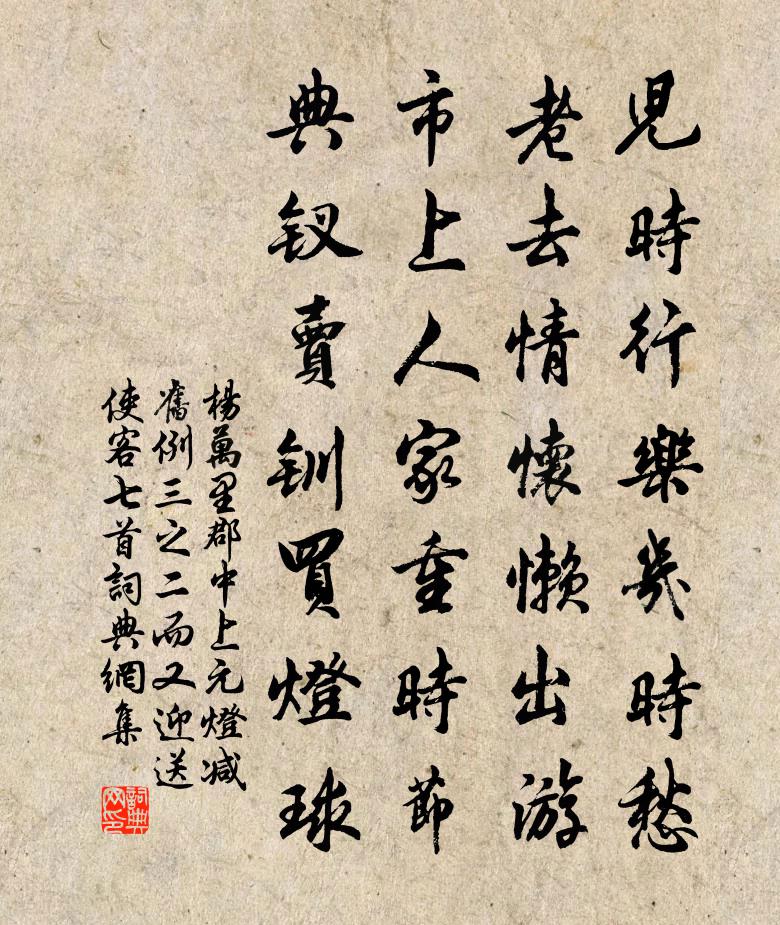 兒時行樂幾時愁
老去情懷懶出游
市上人家重時節
典钗賣钏買燈球
楊萬里郡中上元燈减
舊例三之二而又迎送
使客七首詞典網集
詞典
网印